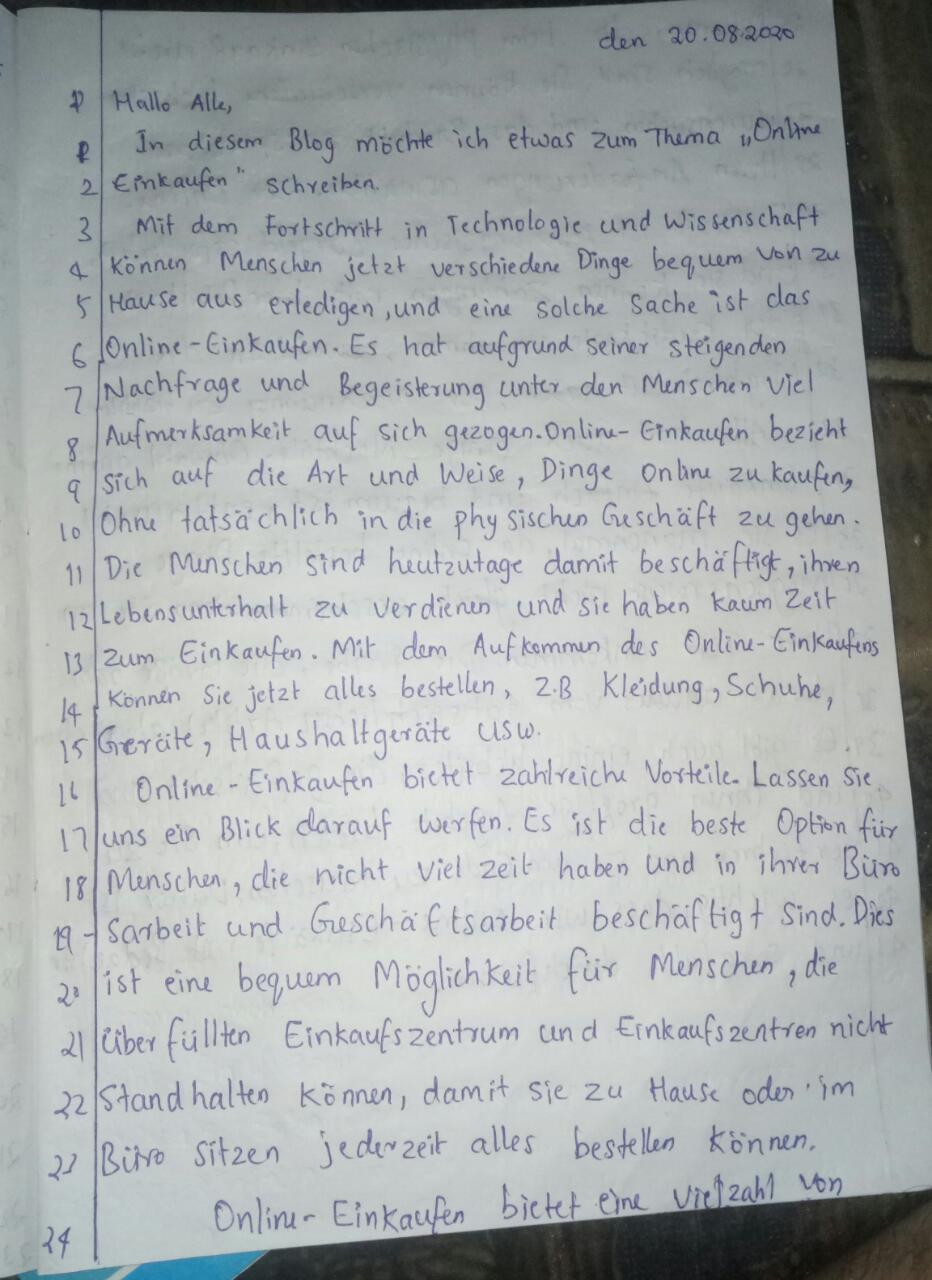 den 20.08.2020
Hallo Alle,
In diesem Blog möchte ich etwas zum Thema „Online
2 Einkaufen" schreiben.
3 Mit dem Fortschritt in Technologie und Wissenschaft
4 können Menschen jetzt verschiedene Dinge bequem von zu
5 Hause aus erledigen, und eine solche Sache ist das
6 Online-Einkaufen. Es hat aufgrund seiner steigenden
7 Nachfrage und Begeisterung unter den Menschen viel
8 Aufmerksamkeit auf sich gezogen. Online-Einkaufen bezieht
9 sich auf die Art und Weise, Dinge online zu kaufen,
10 Ohne tatsächlich in die physischen Geschäft zu gehen.
11 Die Menschen sind heutzutage damit beschäftigt, ihren
12 Lebensunterhalt zu verdienen und sie haben kaum Zeit
13 zum Einkaufen. Mit dem Aufkommen des Online-Einkaufens
14 können Sie jetzt alles bestellen, Z.B Kleidung, Schuhe,
15 Geräte, Haushaltgeräte usw.
16 Online-Einkaufen bietet zahlreiche Vorteile. Lassen Sie
17 uns ein Blick darauf werfen. Es ist die beste Option für
18 Menschen, die nicht viel zeit haben und in ihrer Büro
19 - sarbeit und Geschäftsarbeit beschäftigt sind. Dies
20 ist eine bequem Möglichkeit für Menschen, die
21 überfüllten Einkaufszentrum und Einkaufszentren nicht
22 Standhalten können, damit sie zu Hause oder im
23 Büro sitzen jederzeit alles bestellen können.
24 Online-Einkaufen bietet eine Vielzahl von